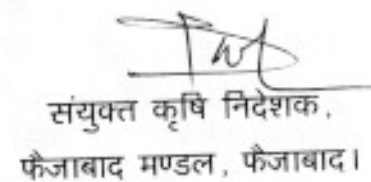 संयुक्त कृषि निदेशक,
फैजाबाद मण्डल, फैजाबाद।